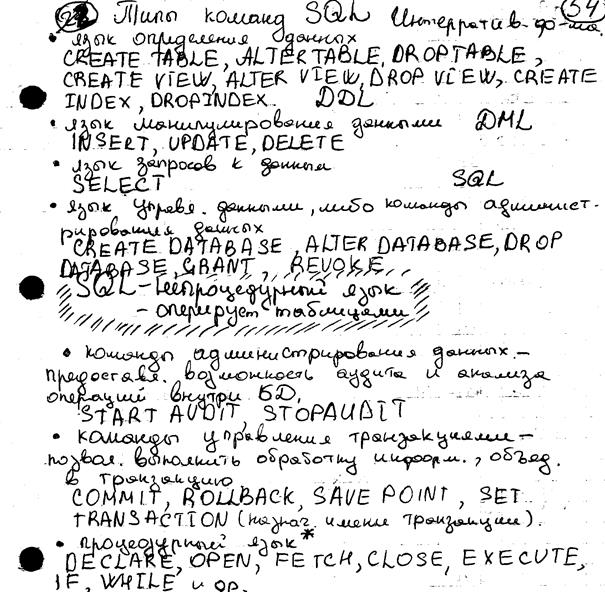 22 Типы команд SQL Интерратив. 54
• язык определения данных
CREATE TABLE, ALTER TABLE, DROP TABLE,
CREATE VIEW, ALTER VIEW, DROP VIEW, CREATE
INDEX, DROP INDEX. DDL
• язык манипулирования данными DML
INSERT, UPDATE, DELETE
• язык запросов к данным
SELECT SQL
• язык управл. данными, либо команды админист-
рирования данных
CREATE DATABASE, ALTER DATABASE, DROP
DATABASE, GRANT, REVOKE
SQL - непроцедурный язык
- оперирует таблицами
• команды администрирования данных -
предоставл. возможность аудита и анализа
операций внутри БД.
START AUDIT, STOP AUDIT
• команды управления транзакциями -
позвол. выполнить обработку информ., объед.
в транзакцию
COMMIT, ROLLBACK, SAVE POINT, SET
TRANSACTION (назнач. имени транзакции).
• процедурный язык*
DECLARE, OPEN, FETCH, CLOSE, EXECUTE,
IF, WHILE и др.